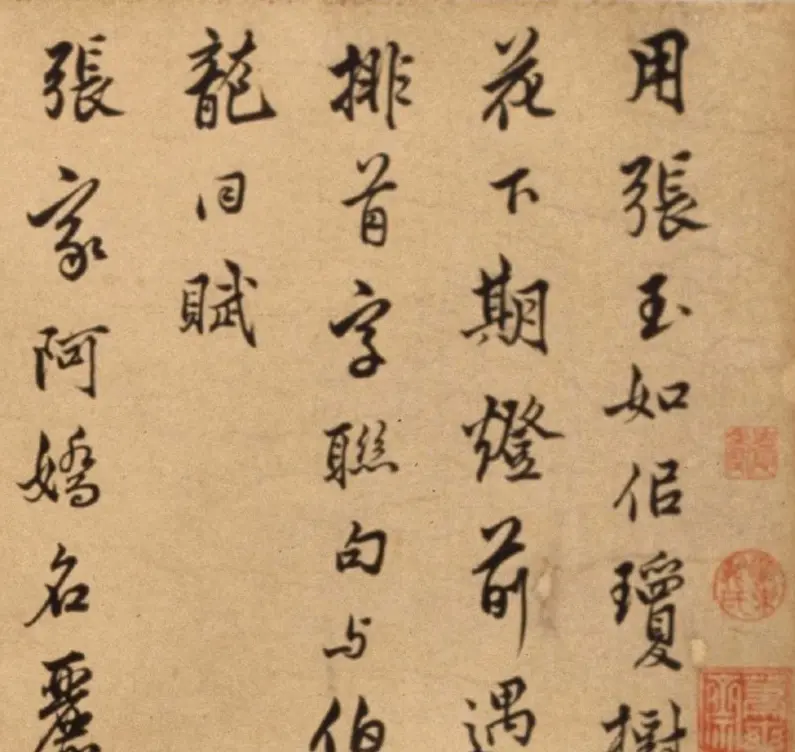 用張玉如佀瓊樹
花下期燈前遇
排首字聯句与伯
龍同賦
張家阿嬌名麗